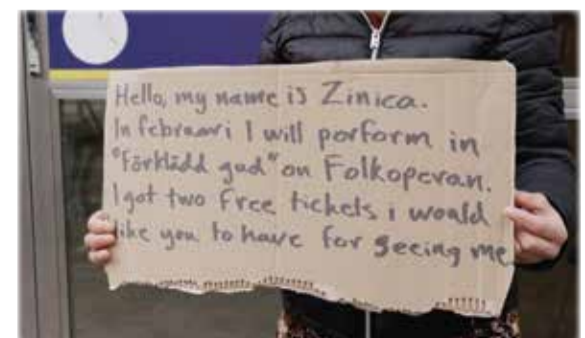 Hello, my name is Zinica.
In februari I will porform in
"Förklädd gud" on Folkoperan.
I got two free tickets i would
like you to have for seeing me